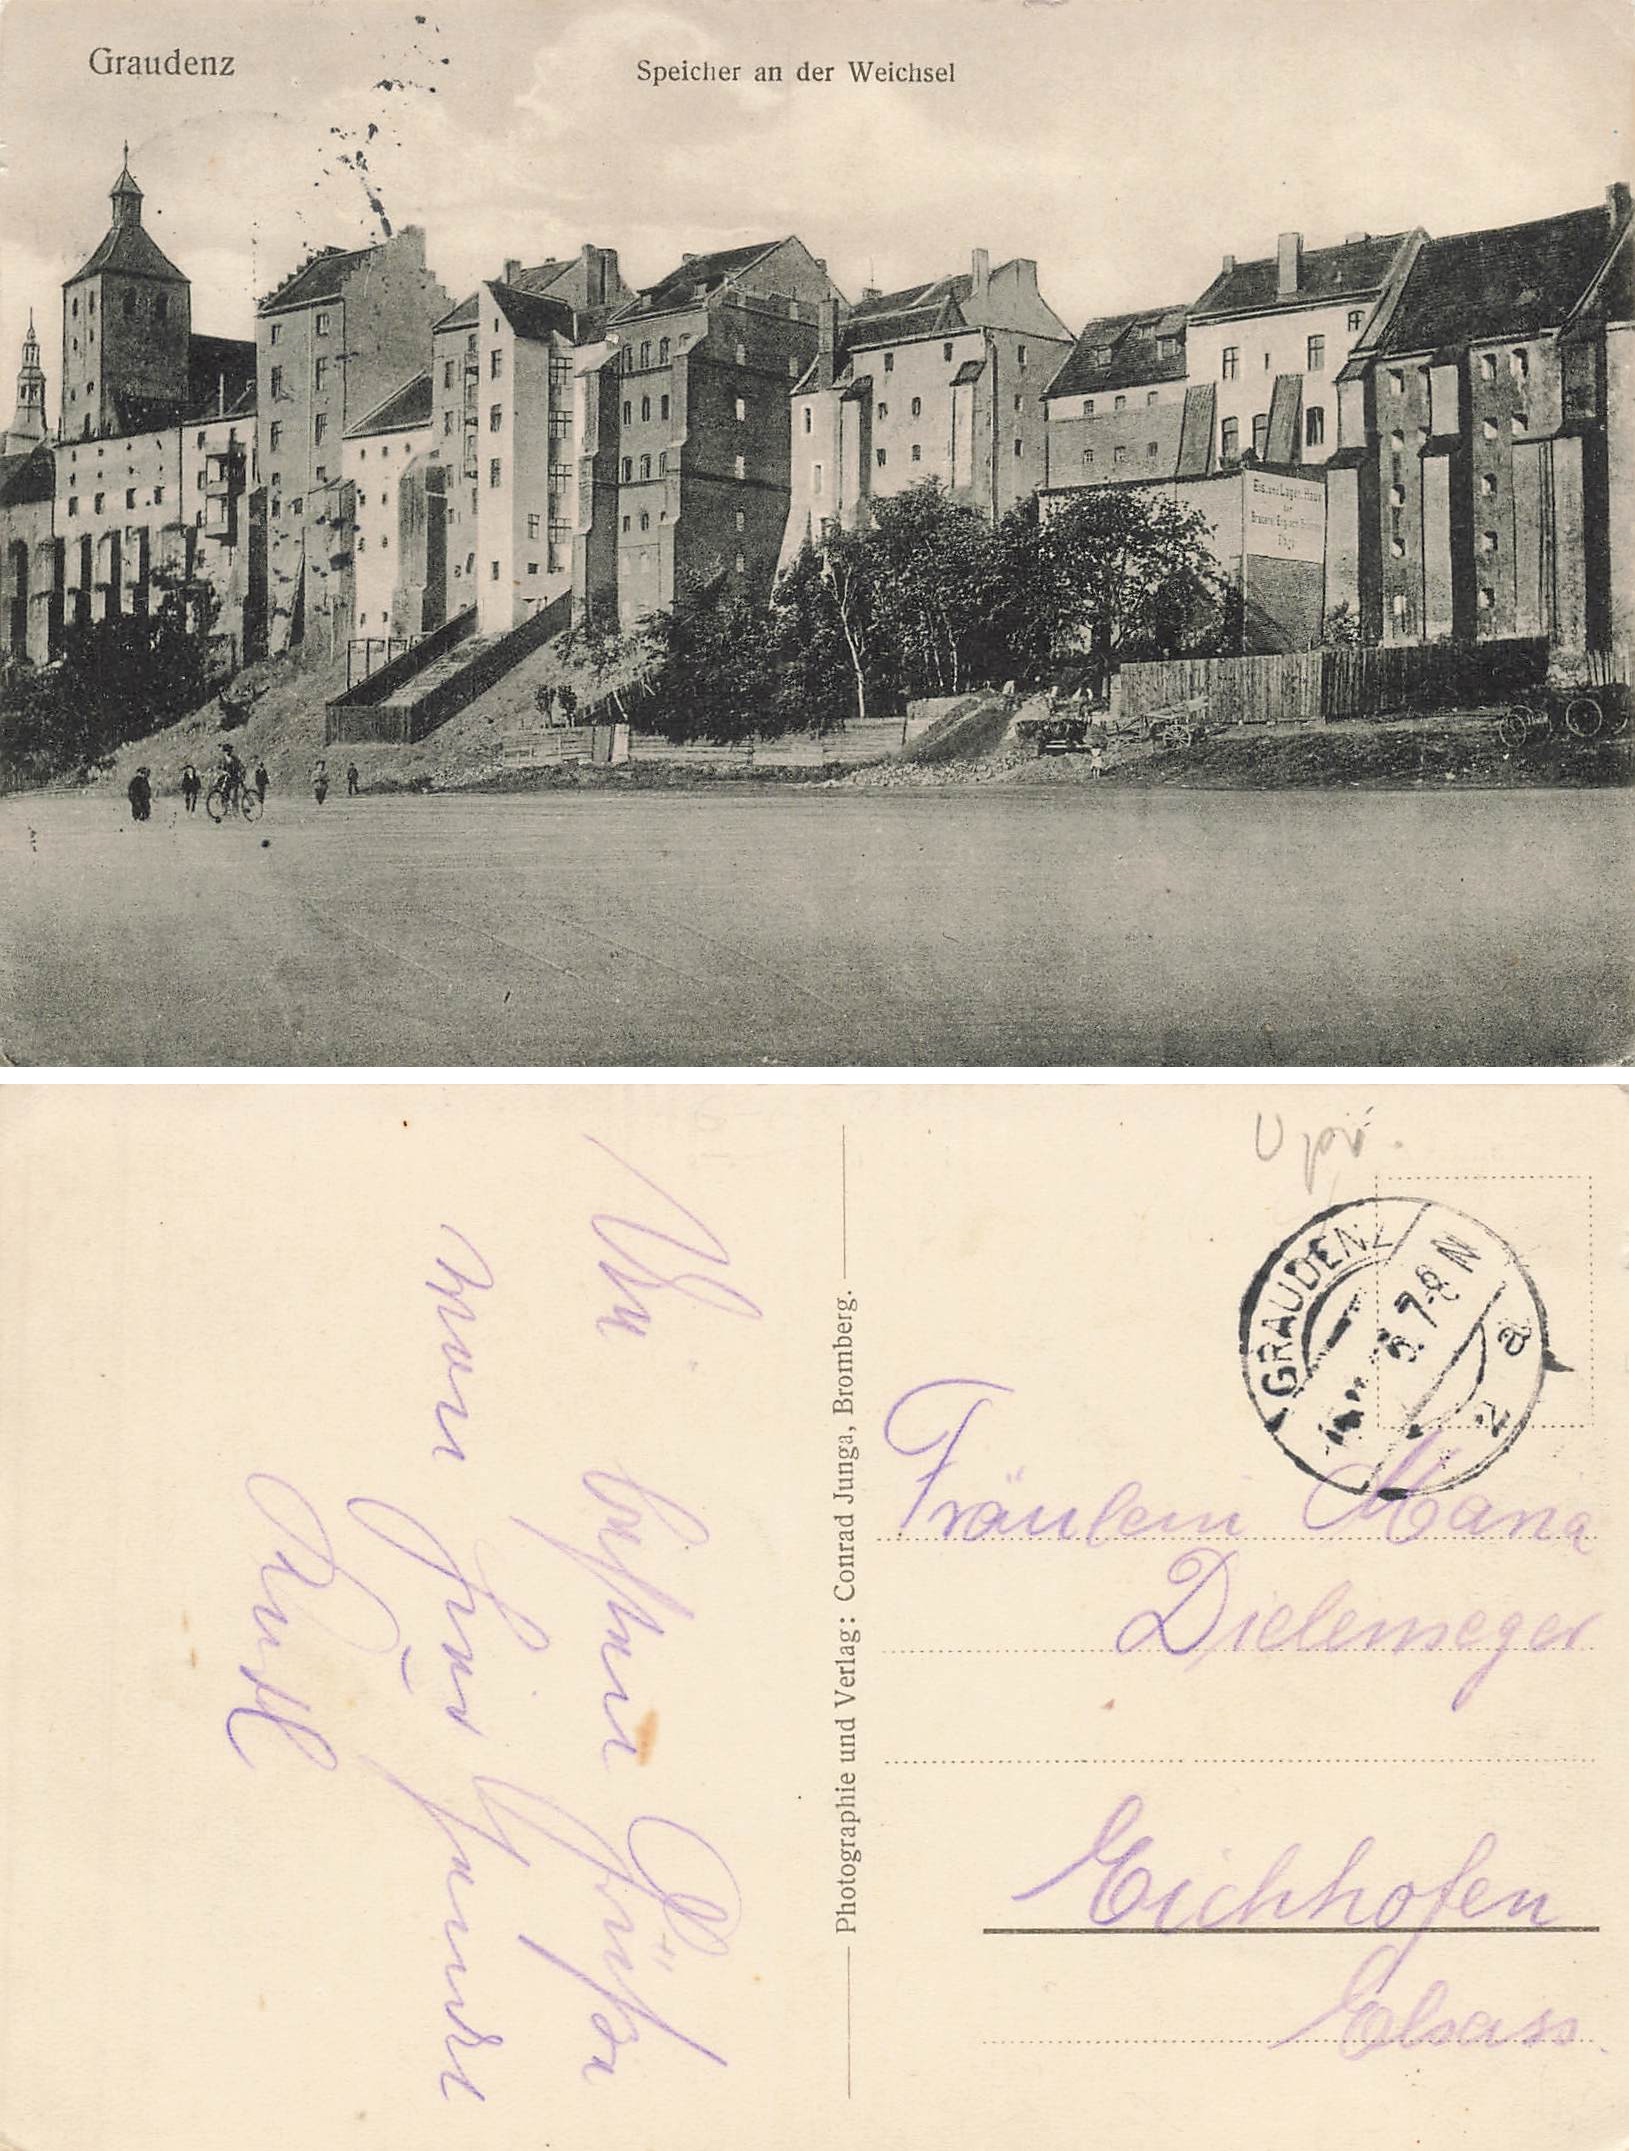 Graudenz
Speicher an der Weichsel
Eis und Lager-Haus
der
Brauerei
Upr.
GRAUDENZ
7-8 N
2 a
Fräulein Maria
Dielemeger
Eichhofen
Elsass.
Photographie und Verlag: Conrad Junga, Bromberg.
Die besten Grüße
von Ihrem Freund
Rudl